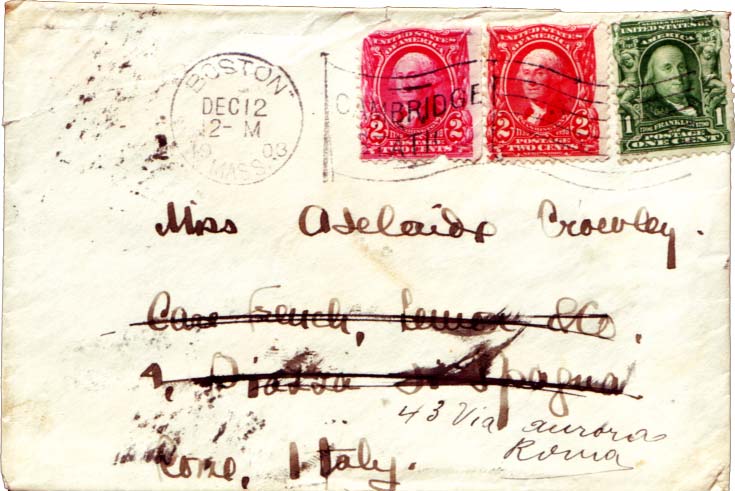 BOSTON
DEC 12
2-M
1903
MASS.
CAMBRIDGE
STA.
UNITED STATES
OF AMERICA
2 2
TWO CENTS
UNITED STATES
OF AMERICA
2 2
POSTAGE
TWO CENTS
SERIES 1902
UNITED STATES OF
AMERICA
1 FRANKLIN 1
POSTAGE
ONE CENT
Miss Adelaide Crowley.
Care French, Lemon & Co.
1, Piazza di Spagna
43 Via Aurora
Roma
Rome, Italy.